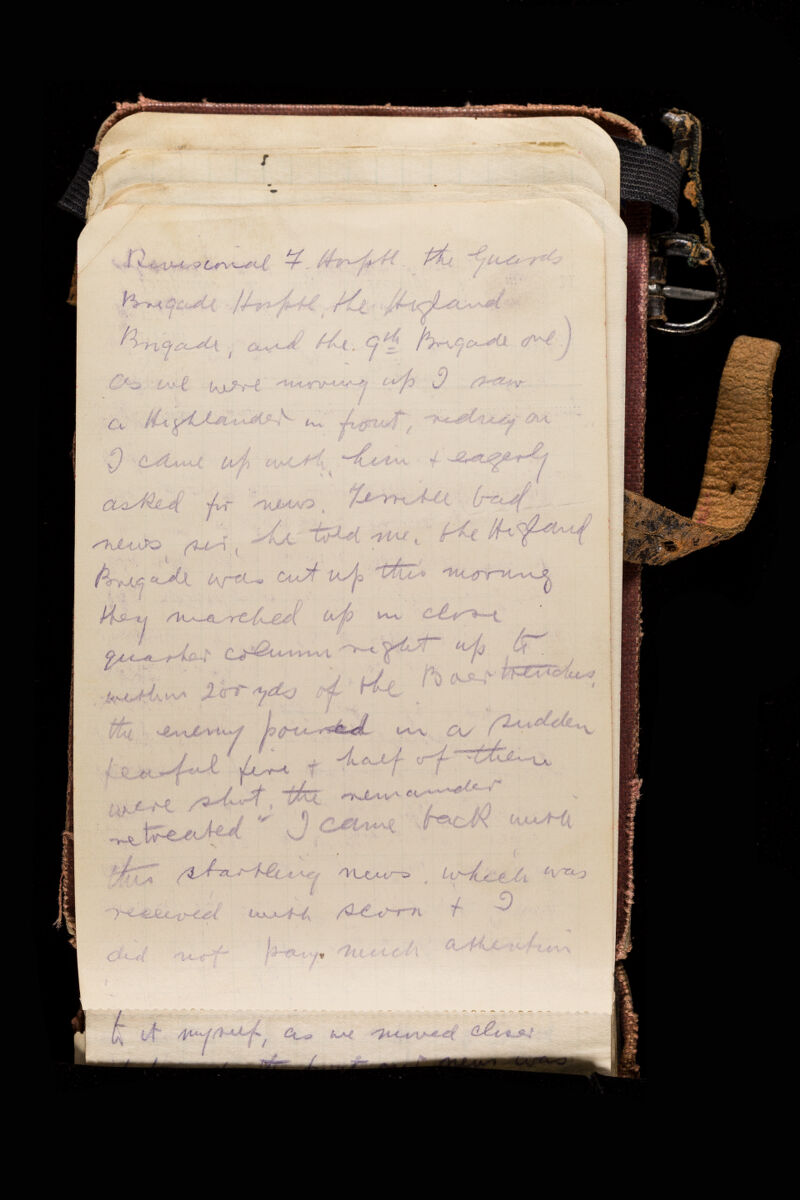 Divisional F. Hosptl. the Guards
Brigade Hosptl, the Higland
Brigade, and the 9th Brigade one)
as we were moving up I saw
a Highlander in front, riding on
I came up with him + eagerly
asked for news. Terrible bad
news sir, he told me. the Higland
Brigade was cut up this morning
they marched up in close
quarter column right up to
within 200 yds of the Boer trenches,
the enemy poured in a sudden
fearful fire + half of them
were shot, the remainder
retreated" I came back with
this startling news. which was
received with scorn + I
did not pay much attention
to it myself, as we moved closer
news was